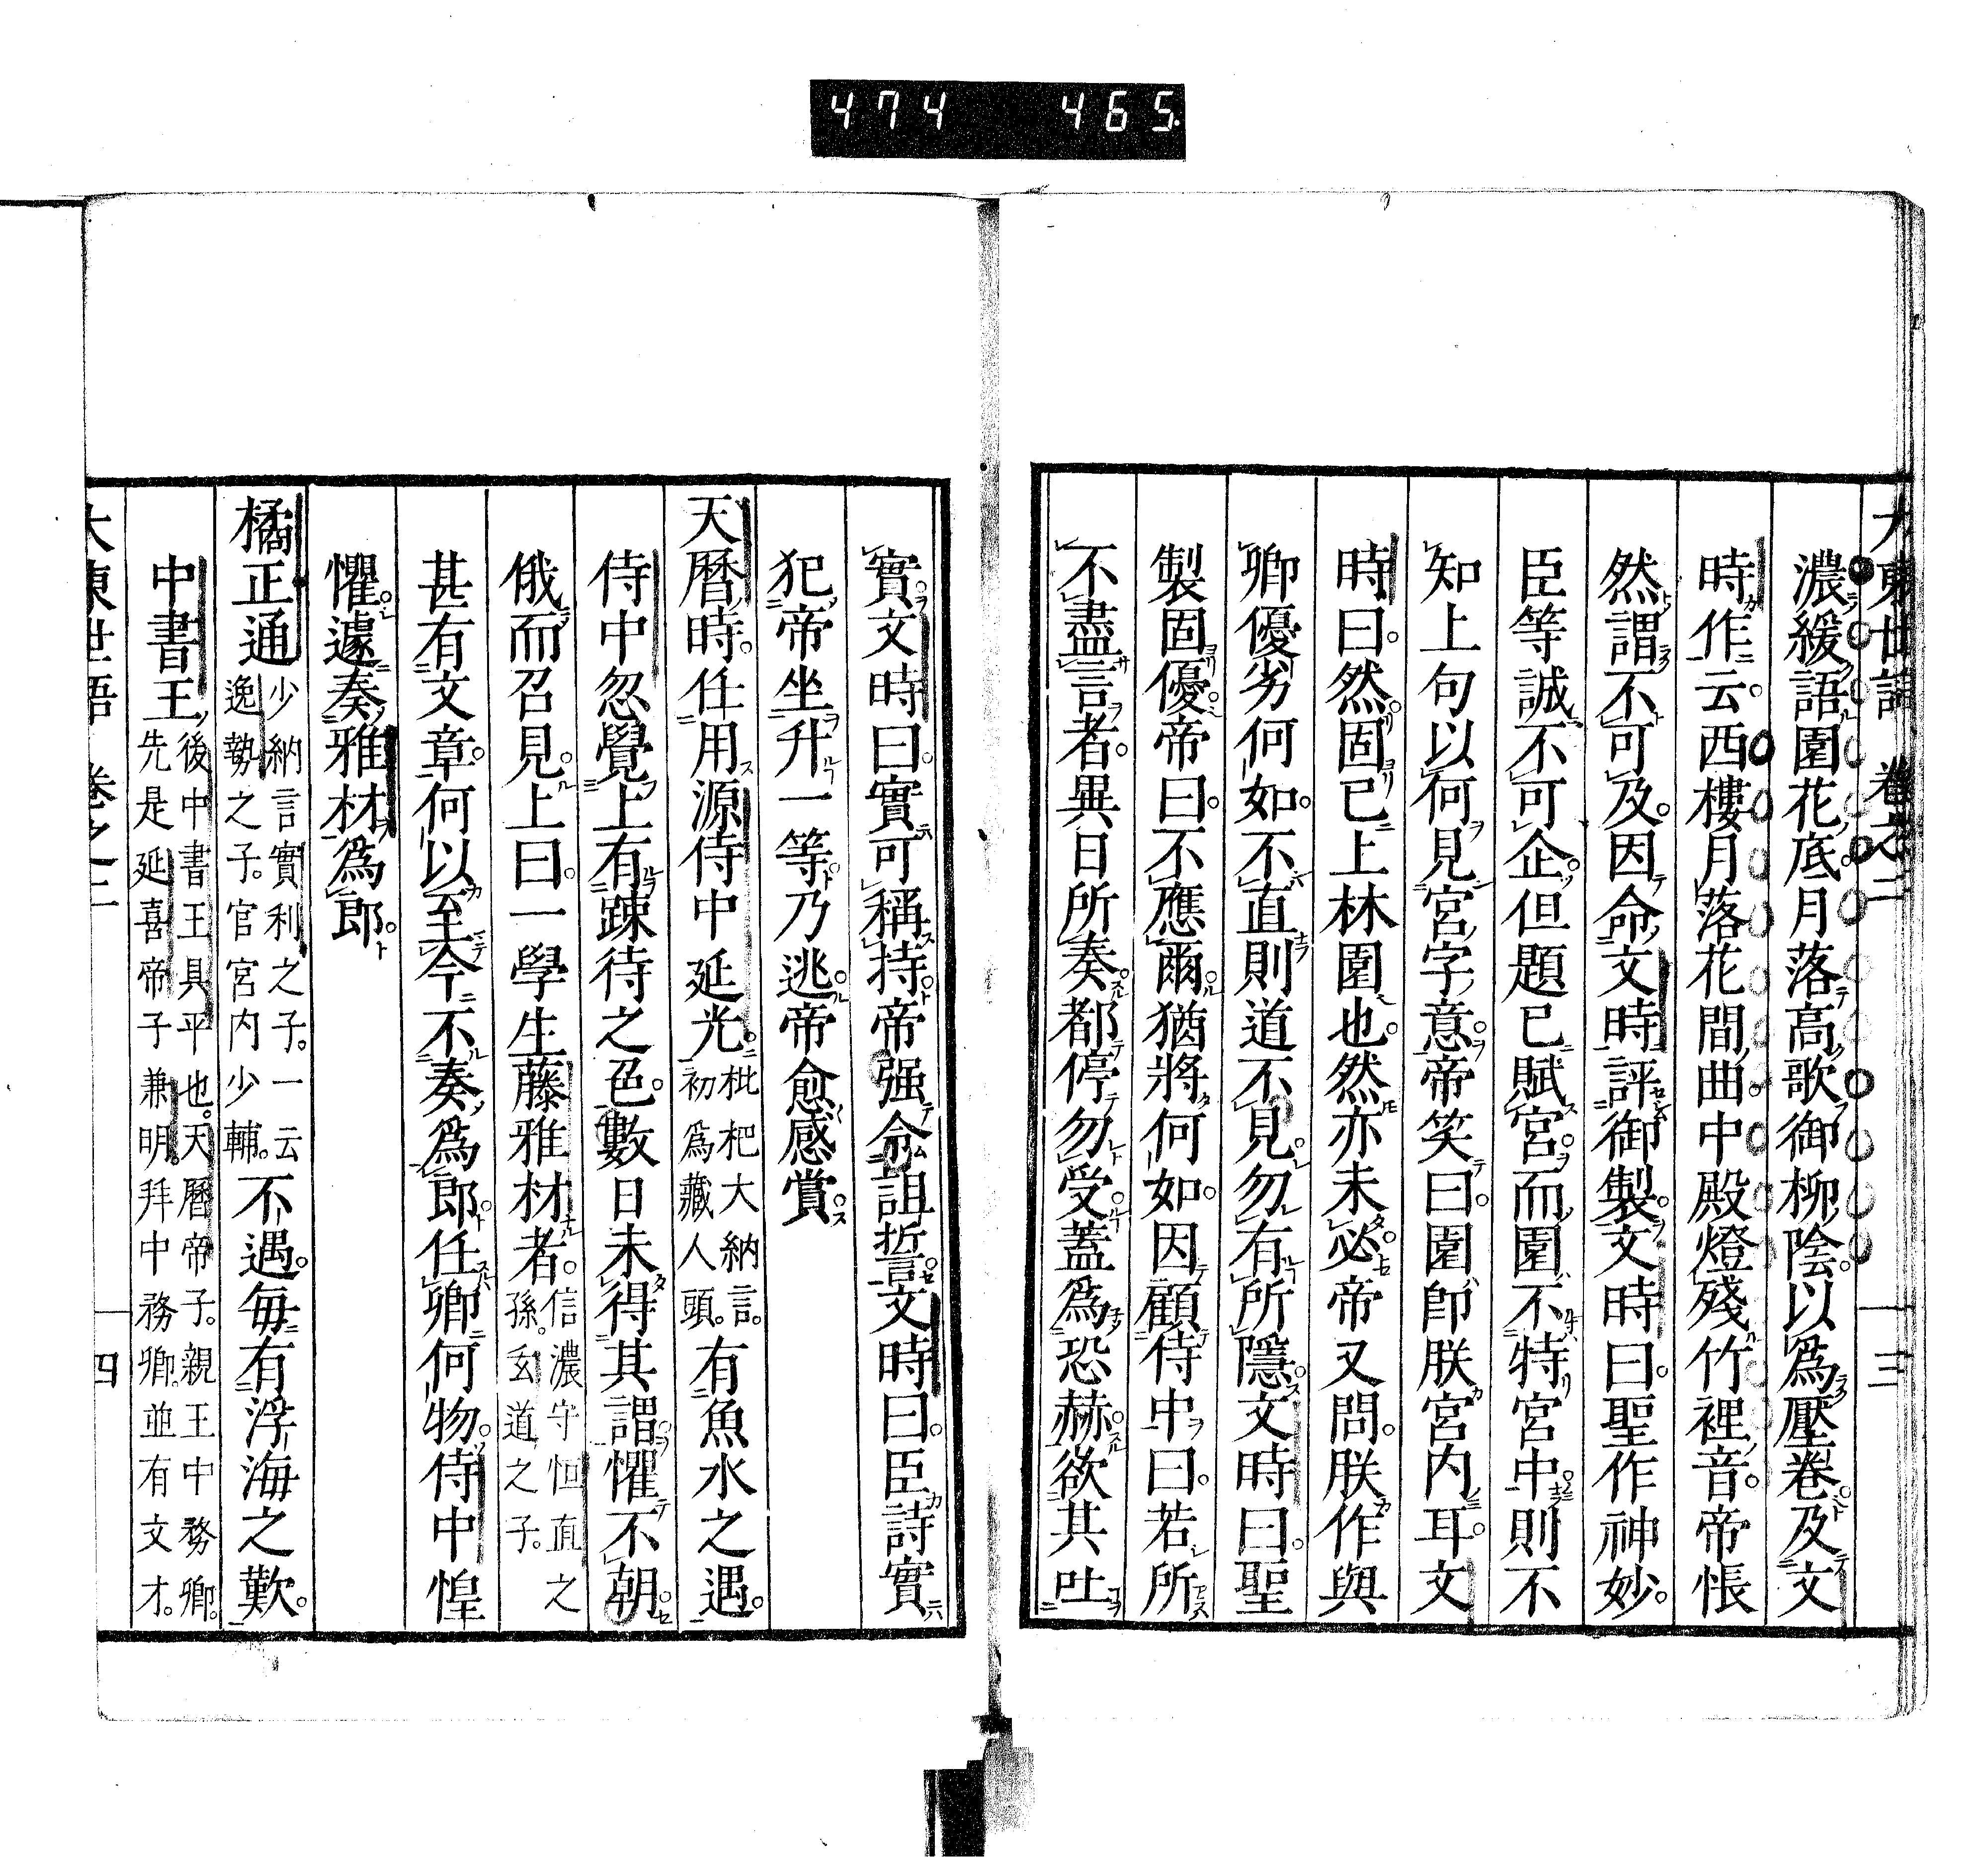 474 465
大東世語 卷之二 三
濃緩語園花底。月落高歌御柳陰。以爲壓卷。及文
時作云。西樓月落花間曲。中殿燈殘竹裡音。帝悵
然謂不可及。因命文時評御製。文時曰。聖作神妙。
臣等誠不可企。但題已賦宮。而園不特宮中。則不
知上句以何見宮字意。帝笑曰。園卽朕宮內耳。文
時曰。然。固已上林園也。然亦未必。帝又問。朕作與
卿優劣何如。不直則道不見。勿有所隱。文時曰。聖
製固優。帝曰。不應爾。猶將何如。因顧侍中曰。若所
不盡言者。異日所奏。都停勿受。蓋爲恐赫欲其吐
實。文時曰。實可稱持。帝强令詛誓。文時曰。臣詩實
犯帝坐升一等。乃逃。帝愈感賞。
天曆時。任用源侍中延光。枇杷大納言。初爲藏人頭。有魚水之遇。
侍中忽覺上有踈待之色。數日未得其謂。懼不朝。
俄而召見。上曰。一學生藤雅材者。信濃守恒直之孫。玄道之子。
甚有文章。何以至今不奏爲郎。任卿何物。侍中惶
懼。遽奏雅材爲郎。
橘正通少納言實利之子。一云逸勢之子。官宮內少輔。不遇。每有浮海之歎。
中書王後中書王具平也。天曆帝子。親王中務卿。先是延喜帝子兼明。拜中務卿。並有文才。
大東世語 卷之二 四